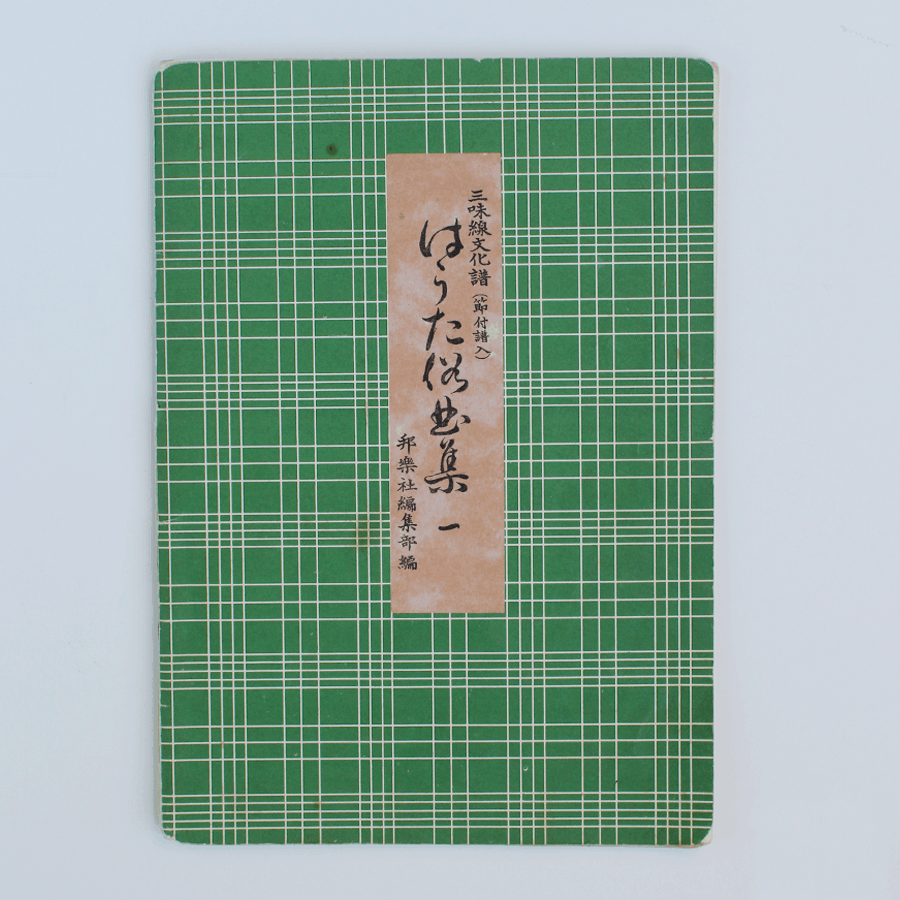 三味線文化譜（節付譜入）
はうた俗曲集 一
邦樂社編集部編